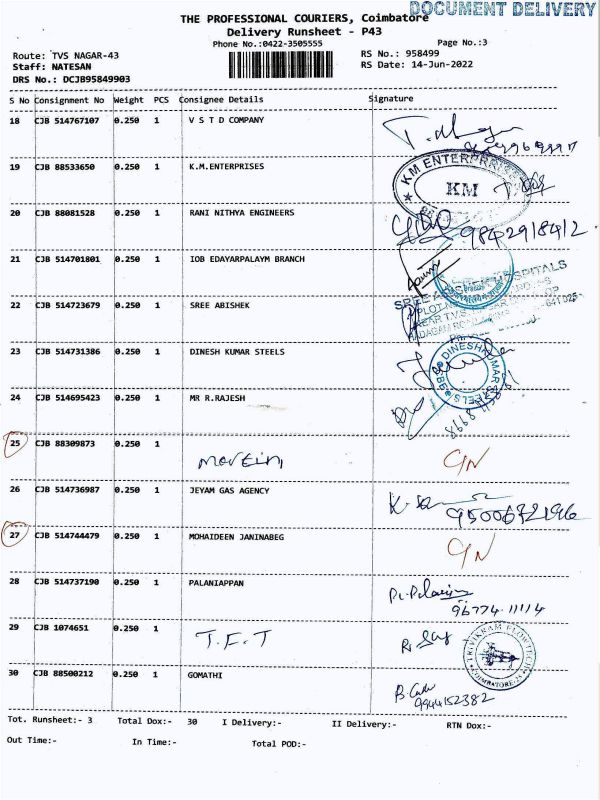 DOCUMENT DELIVERY
THE PROFESSIONAL COURIERS, Coimbatore
Delivery Runsheet - P43
Phone No.:0422-3505555 Page No.:3
Route: TVS NAGAR-43 RS No.: 958499
Staff: NATESAN RS Date: 14-Jun-2022
DRS No.: DCJB95849903
S No Consignment No Weight PCS Consignee Details Signature
18 CJB 514767107 0.250 1 V S T D COMPANY
19 CJB 88533650 0.250 1 K.M.ENTERPRISES
KM ENTERPRISES
KM
20 CJB 88081528 0.250 1 RANI NITHYA ENGINEERS
9842918412
21 CJB 514701801 0.250 1 IOB EDAYARPALAYM BRANCH
22 CJB 514723679 0.250 1 SREE ABISHEK
SREE HOSPITALS
23 CJB 514731386 0.250 1 DINESH KUMAR STEELS
DINESH KUMAR STEELS
24 CJB 514695423 0.250 1 MR R.RAJESH
25 CJB 88309873 0.250 1 Martin
26 CJB 514736987 0.250 1 JEYAM GAS AGENCY
27 CJB 514744479 0.250 1 MOHAIDEEN JANINABEG
28 CJB 514737190 0.250 1 PALANIAPPAN
96774 11114
29 CJB 1074651 0.250 1 T.F.T
TRIVIKRAM
COIMBATORE
30 CJB 88500212 0.250 1 GOMATHI
9944152382
Tot. Runsheet:- 3 Total Dox:- 30 I Delivery:- II Delivery:- RTN Dox:-
Out Time:- In Time:- Total POD:-